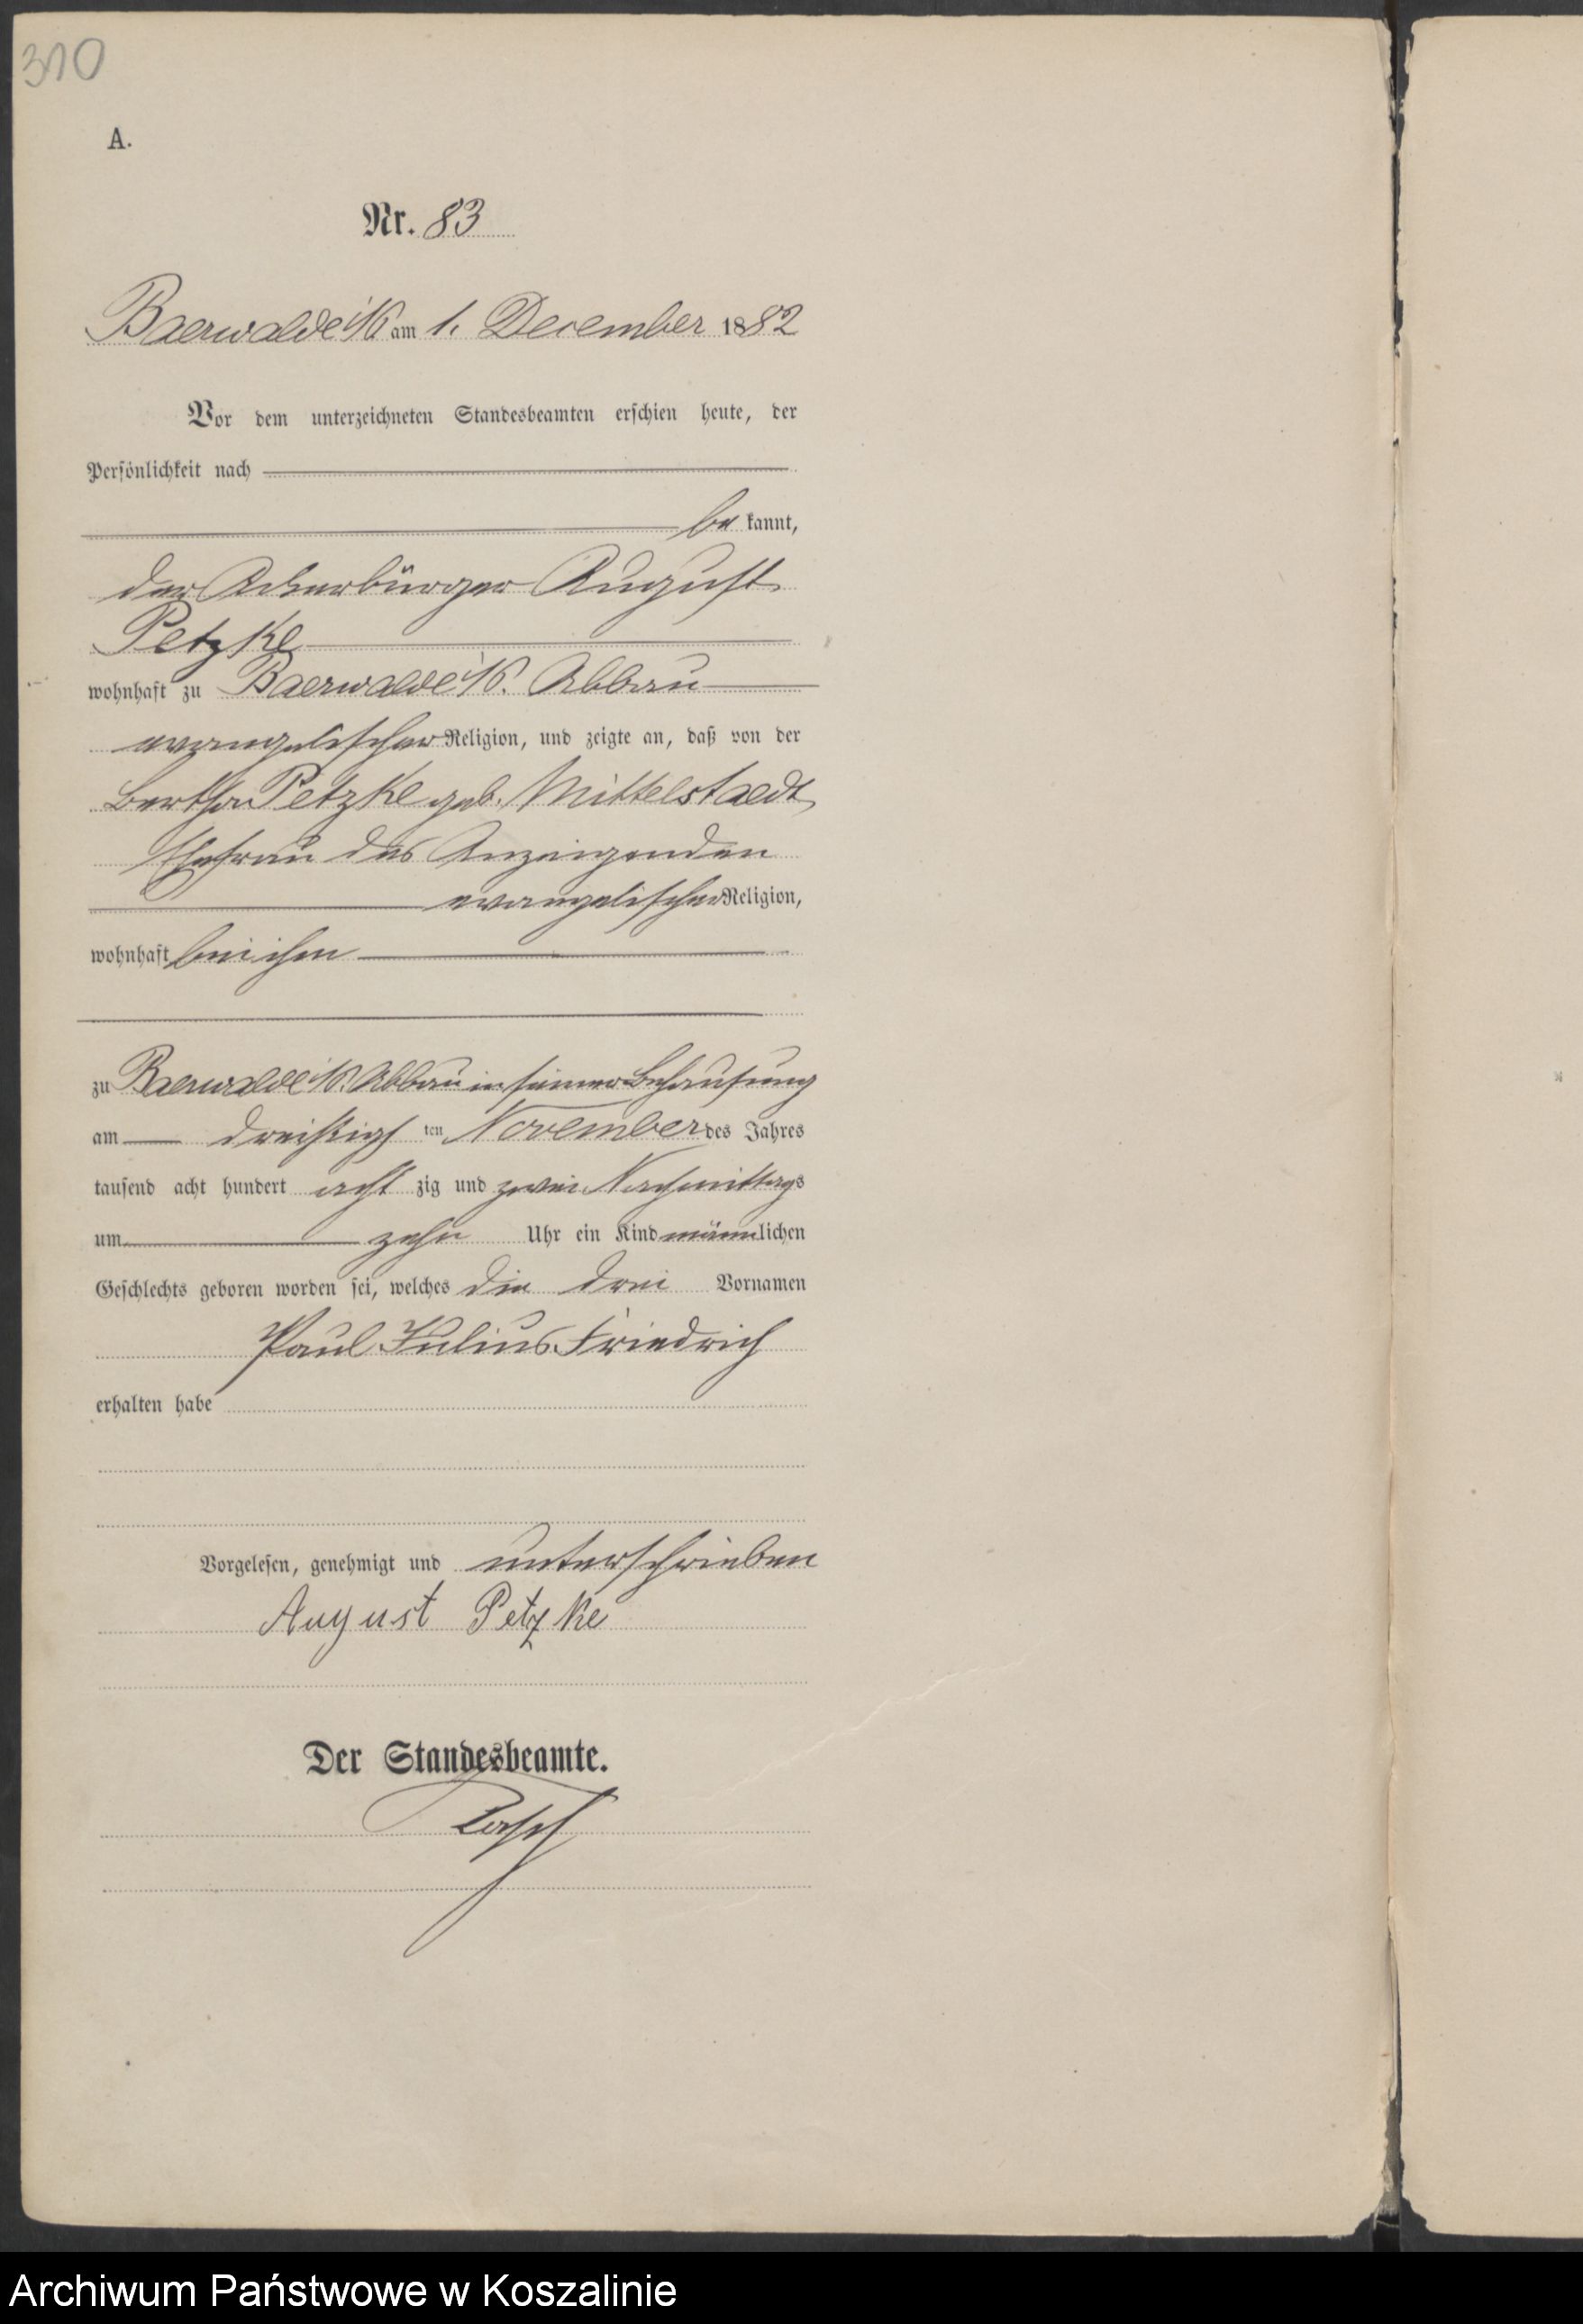 310
A.
Nr. 83
Baerwalde i/P. am 1. December 1882
Vor dem unterzeichneten Standesbeamten erschien heute, der
Persönlichkeit nach
be kannt,
der Ackerbürger August
Petzke
wohnhaft zu Baerwalde i/P. Abbau
evangelischer Religion, und zeigte an, daß von der
Bertha Petzke geb. Mittelstaedt,
Ehefrau des Anzeigenden
evangelischer Religion,
wohnhaft bei ihm
zu Baerwalde i/P. Abbau in seiner Behausung
am dreißigsten November des Jahres
tausend acht hundert acht zig und zwei Nachmittags
um zehn Uhr ein Kind männlichen
Geschlechts geboren worden sei, welches die drei Vornamen
Paul Julius Friedrich
erhalten habe
Vorgelesen, genehmigt und unterschrieben
August Petzke
Der Standesbeamte.
Archiwum Państwowe w Koszalinie